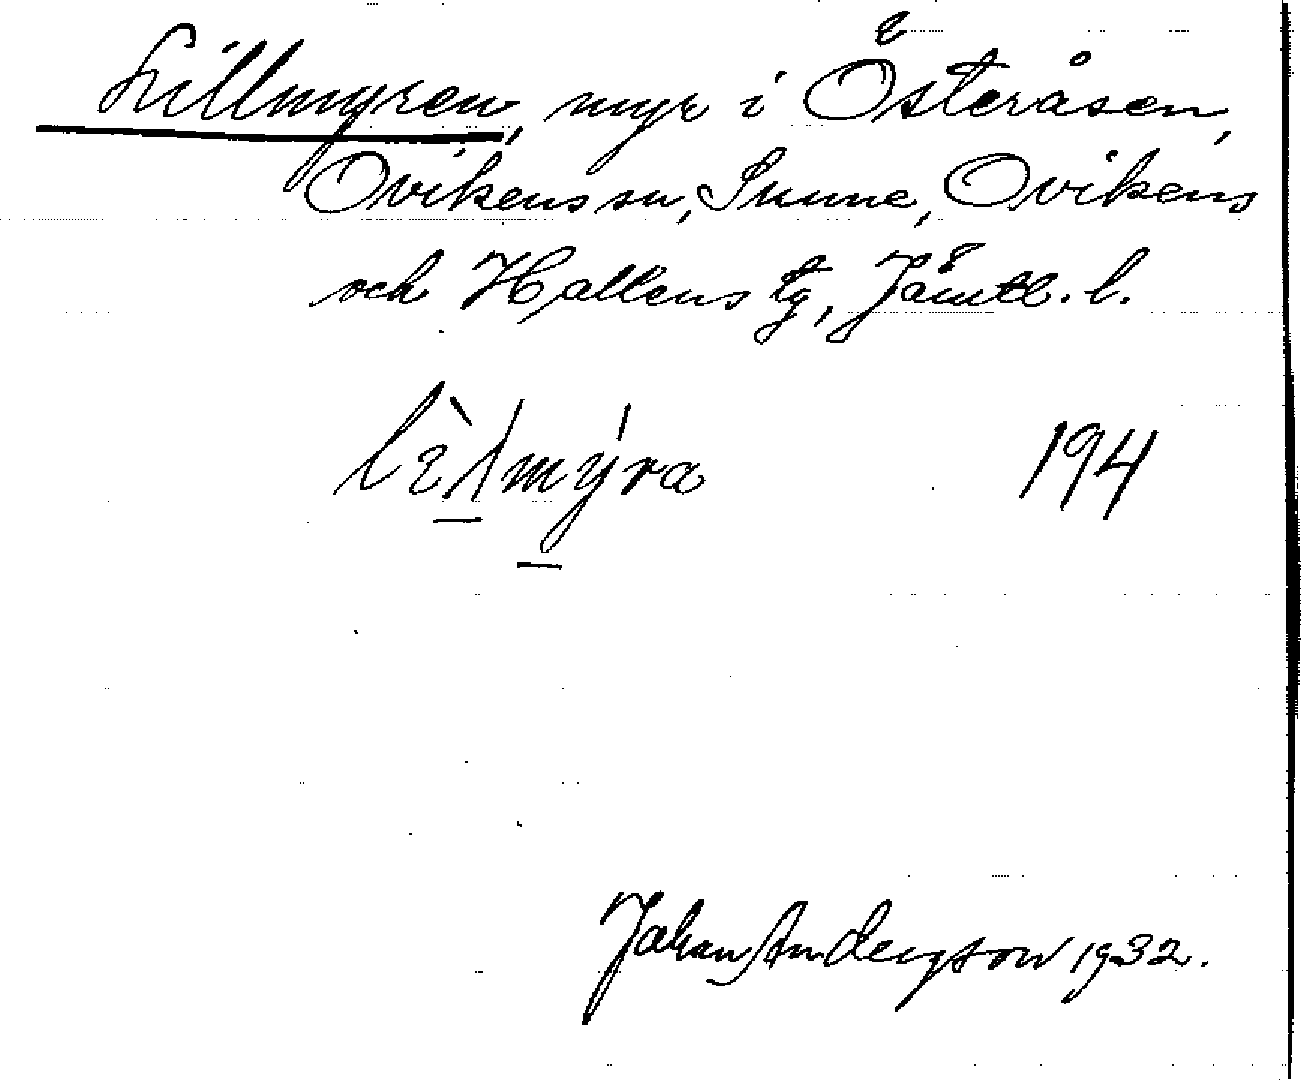 Lillmyren, myr i Österåsen,
Ovikens sn, Sunne, Ovikens
och Hallens tg, Jämtl. l.
194
Johan Anderson 1932.